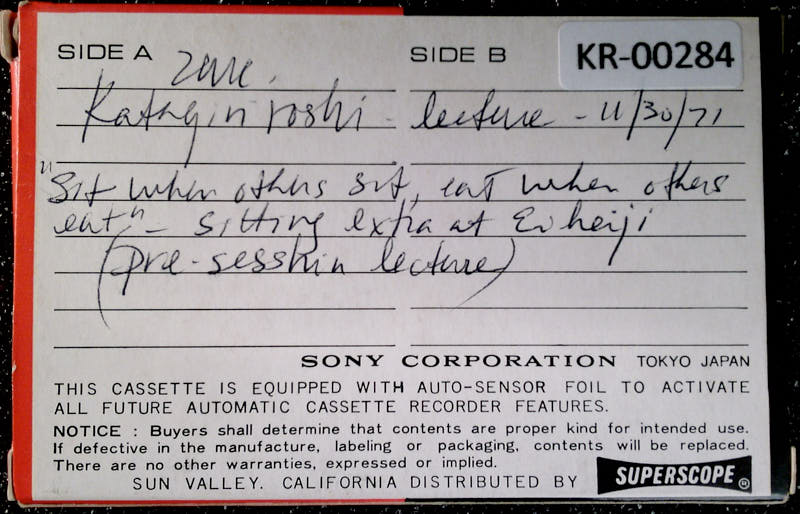 SIDE A
SIDE B
KR-00284
Katagiri roshi - lecture - 11/30/71
"Sit when others sit, eat when others
eat" - sitting extra at Eiheiji
(pre-sesshin lecture)
SONY CORPORATION TOKYO JAPAN
THIS CASSETTE IS EQUIPPED WITH AUTO-SENSOR FOIL TO ACTIVATE
ALL FUTURE AUTOMATIC CASSETTE RECORDER FEATURES.
NOTICE : Buyers shall determine that contents are proper kind for intended use.
If defective in the manufacture, labeling or packaging, contents will be replaced.
There are no other warranties, expressed or implied.
SUN VALLEY. CALIFORNIA DISTRIBUTED BY SUPERSCOPE®